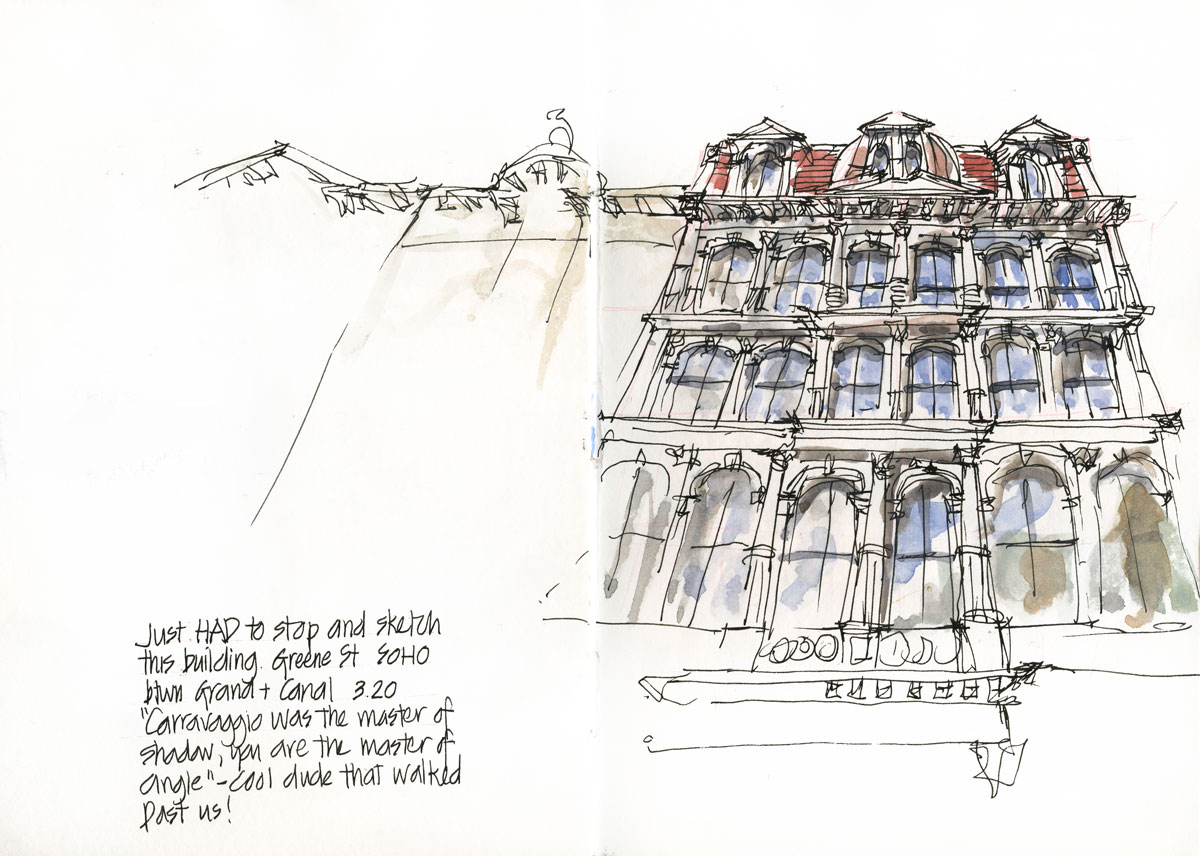 Just HAD to stop and sketch
this building. Greene St SOHO
btwn Grand + Canal 3.20
"Carravaggio was the master of
shadow, you are the master of
angle" - cool dude that walked
past us!